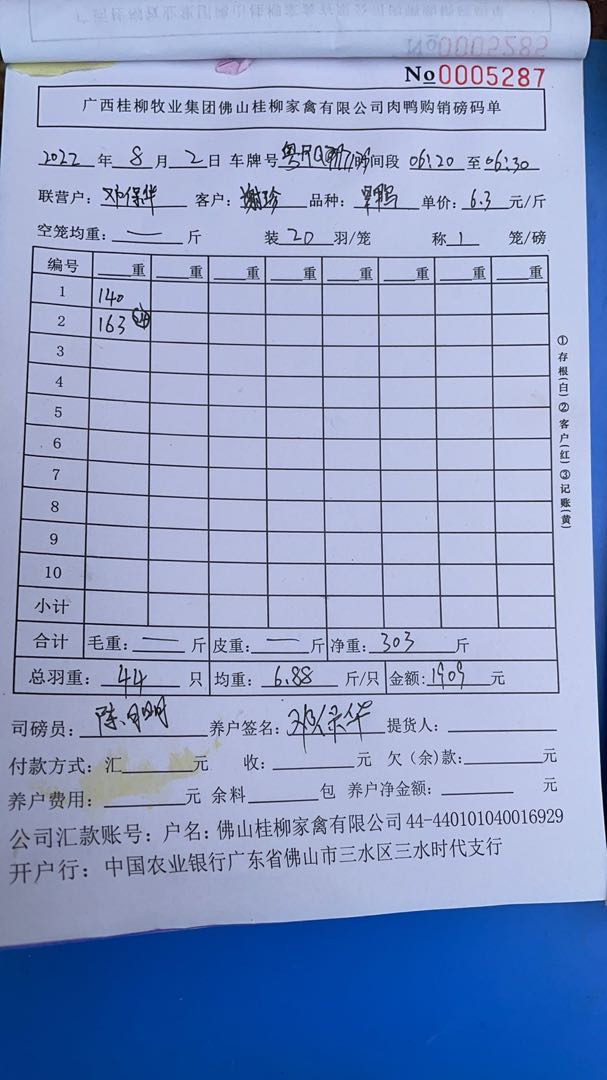 No0005285
No0005287
广西桂柳牧业集团佛山桂柳家禽有限公司肉鸭购销磅码单
2022 年 8 月 2 日 车牌号 粤 时间段 06:20 至 06:30
联营户: 邓保华 客户: 谢珍 品种: 鸭 单价: 6.3 元/斤
空笼均重: — 斤 装 20 羽/笼 称 1 笼/磅
编号 重 重 重 重 重 重 重 重
1 140
2 163 24
3
4
5
6
7
8
9
10
小计
合计 毛重: — 斤 皮重: — 斤 净重: 303 斤
总羽重: 44 只 均重: 6.88 斤/只 金额: 1909 元
司磅员: 陈明 养户签名: 邓保华 提货人:
付款方式: 汇 元 收: 元 欠(余)款: 元
养户费用: 元 余料 包 养户净金额: 元
公司汇款账号: 户名: 佛山桂柳家禽有限公司 44-440101040016929
开户行: 中国农业银行广东省佛山市三水区三水时代支行
①存根(白)②客户(红)③记账(黄)